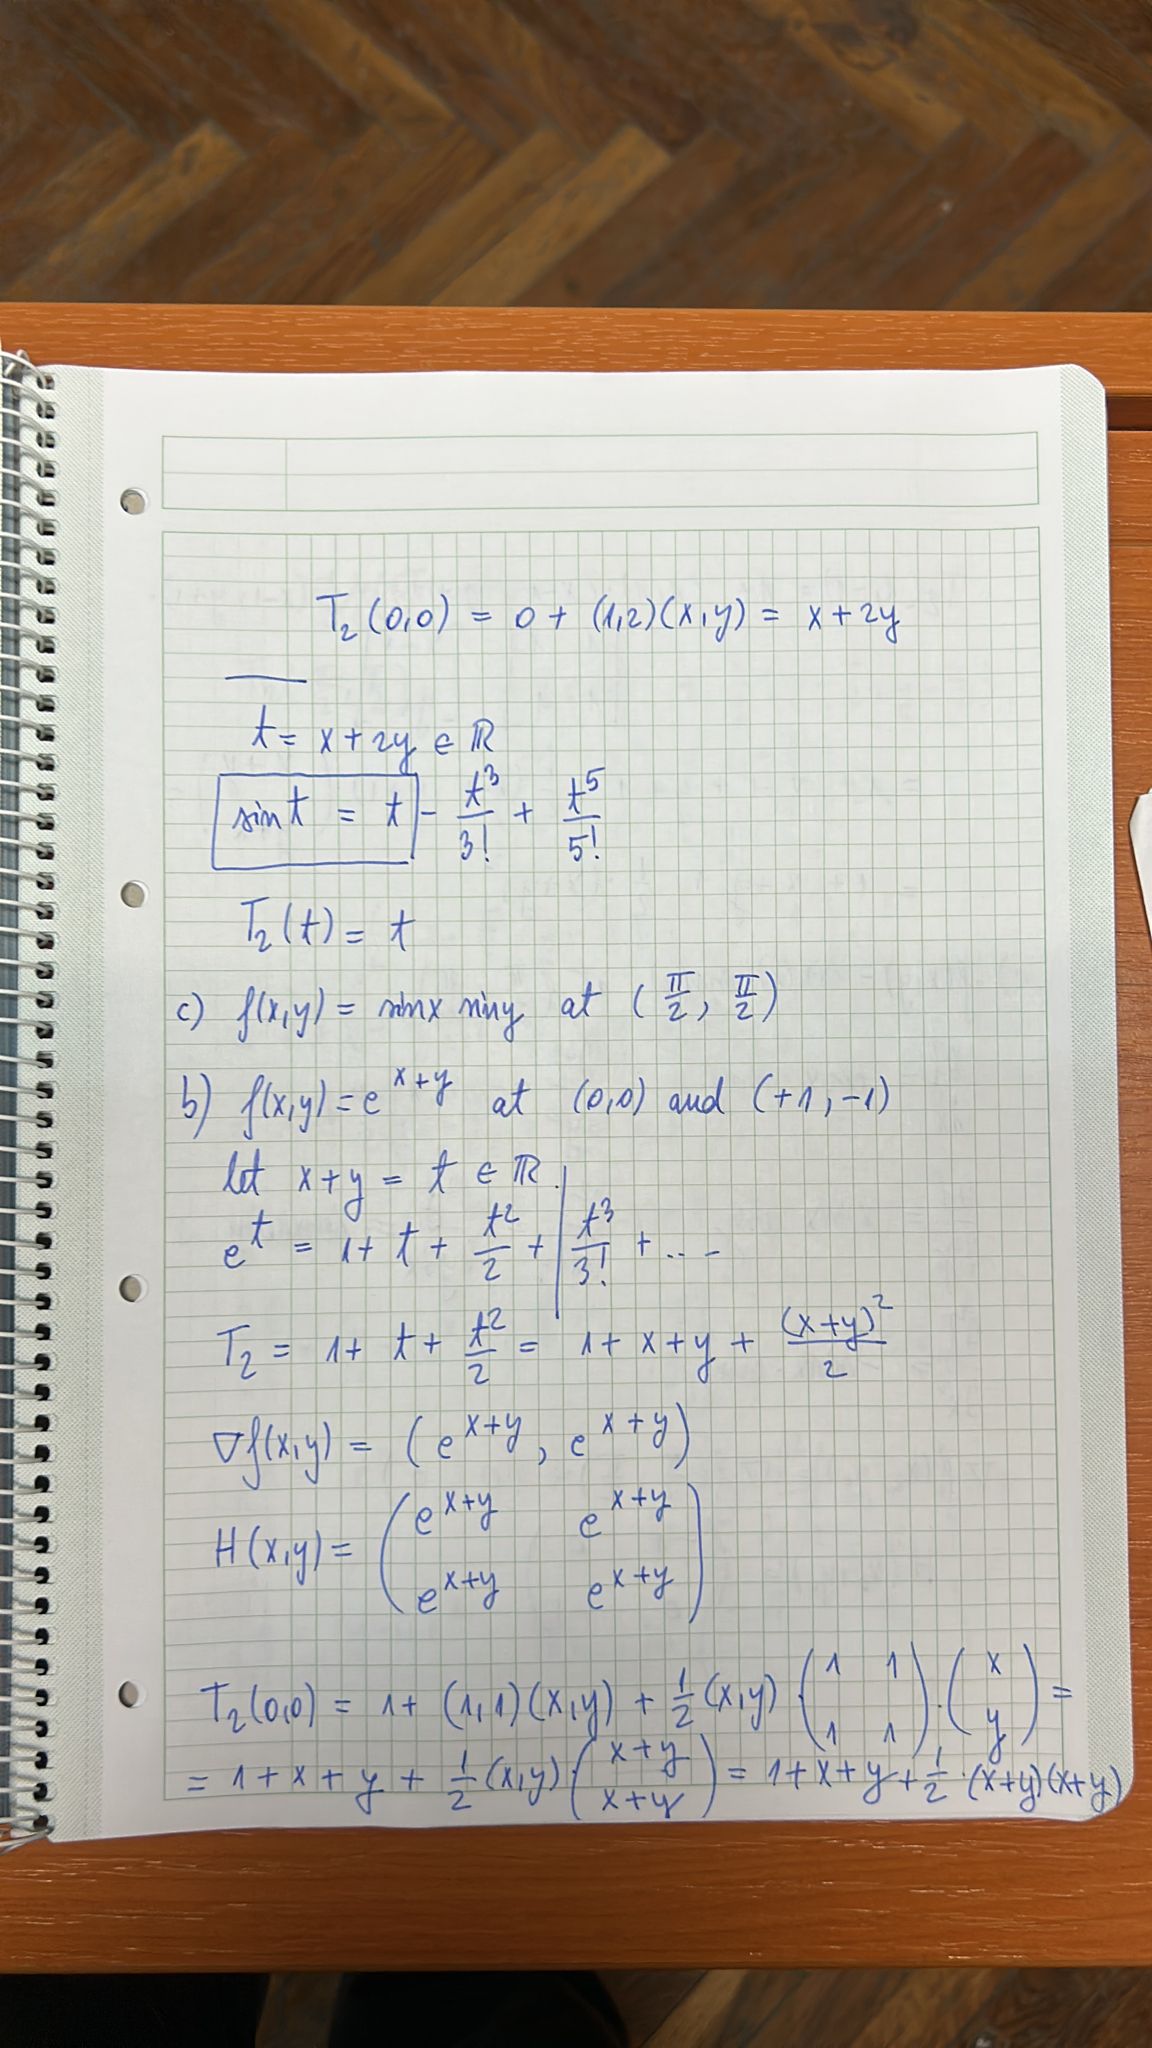 T₂(0,0) = 0 + (1,2)(x,y) = x + 2y
t = x + 2y ∈ ℝ
sin t = t - t³/3! + t⁵/5!
T₂(t) = t
c) f(x,y) = sinx siny at (π/2, π/2)
b) f(x,y) = e^(x+y) at (0,0) and (+1,-1)
let x+y = t ∈ ℝ.
e^t = 1 + t + t²/2 + | t³/3! + ...
T₂ = 1 + t + t²/2 = 1 + x + y + (x+y)²/2
∇f(x,y) = (e^(x+y), e^(x+y))
H(x,y) = (e^(x+y) e^(x+y) ; e^(x+y) e^(x+y))
T₂(0,0) = 1 + (1,1)(x,y) + 1/2 (x,y) · (1 1 ; 1 1) · (x ; y) =
= 1 + x + y + 1/2 (x,y) · (x+y ; x+y) = 1 + x + y + 1/2 · (x+y)(x+y)